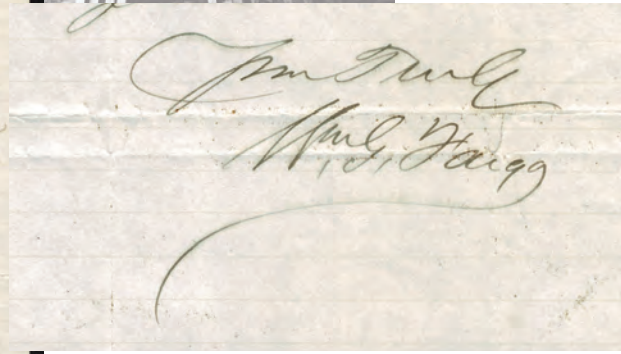 Yours Truly
Wm G. Fargo